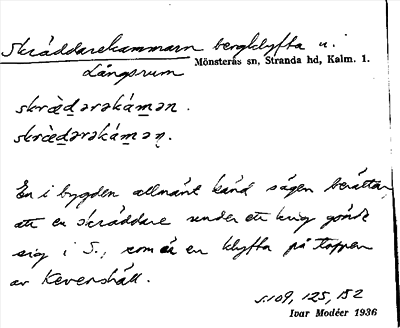 Skräddarekammarn bergklyfta i
Långsrum Mönsterås sn, Stranda hd, Kalm. 1.
skrὰd̲ərəkám̲ən.
skrὰd̲ərəkám̲ən̥.
En i bygden allmänt känd sägen berättar,
att en skräddare under ett krig gömde
sig i S., som är en klyfta på toppen
av Kevershäll.
s. 109, 125, 152
Ivar Modéer 1936